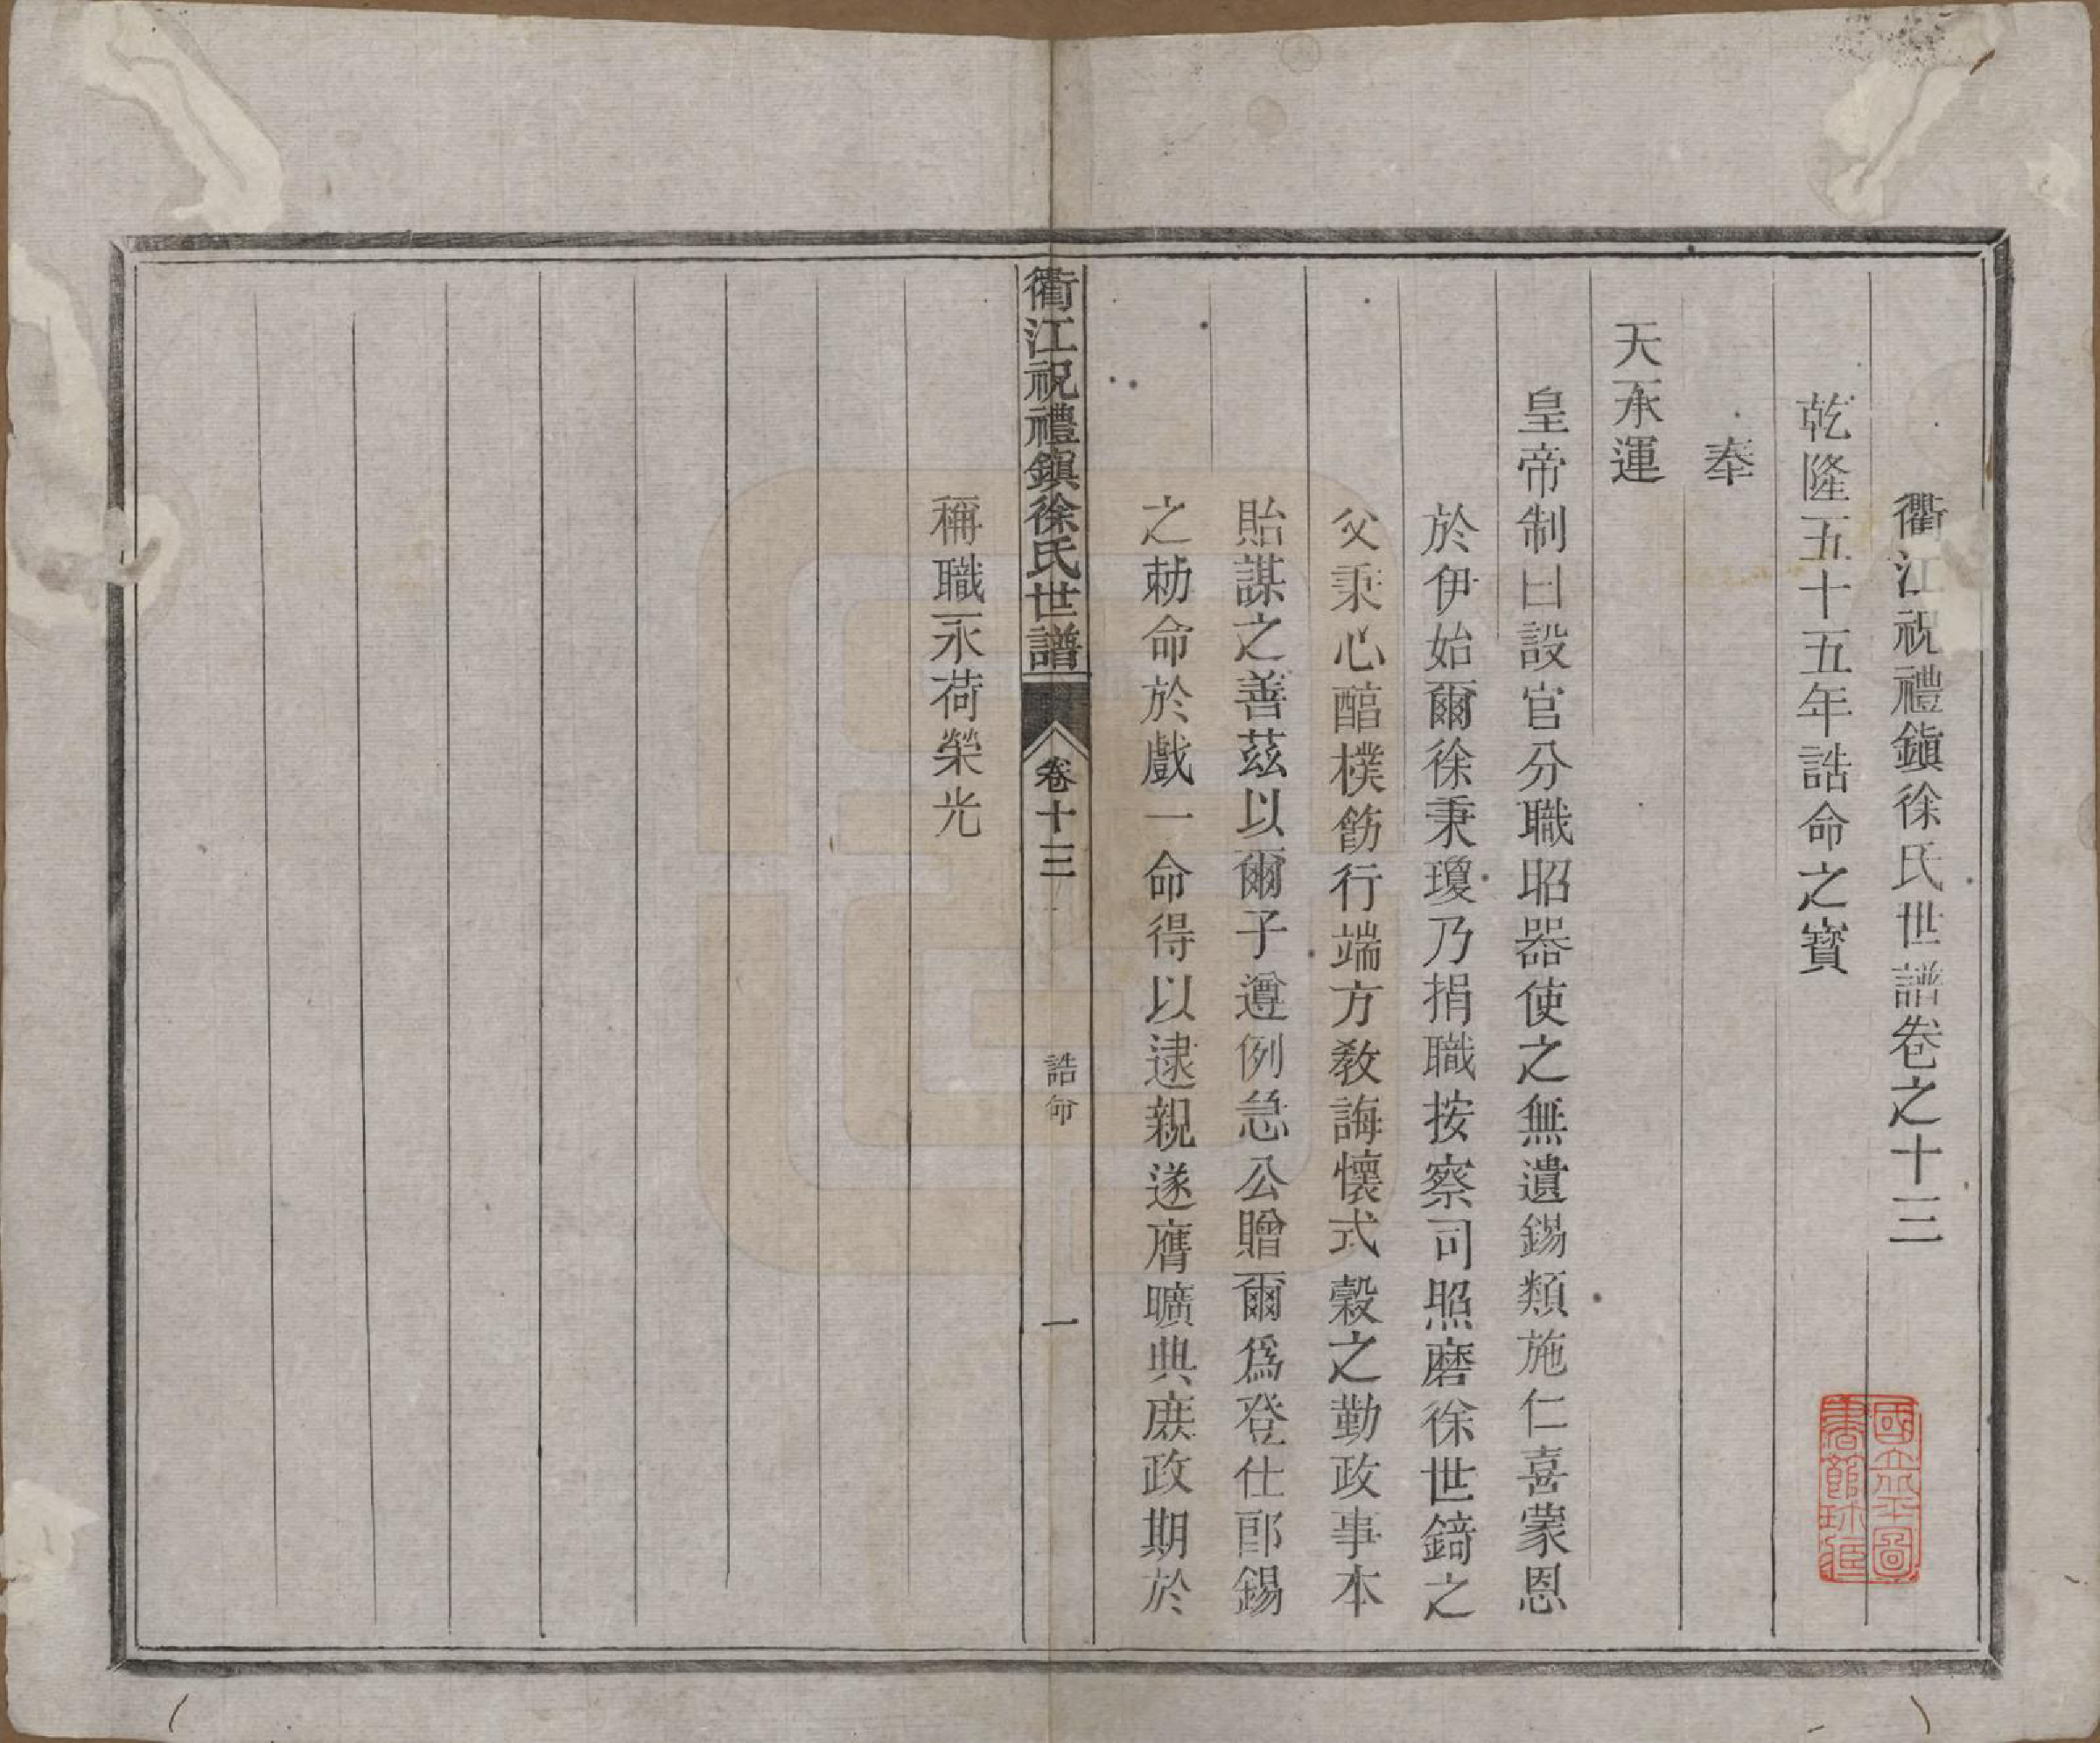 衢江祝禮鎮徐氏世譜卷之十三
乾隆五十五年誥命之寳
奉
天承運
皇帝制曰設官分職昭器使之無遺錫類施仁喜蒙恩
於伊始爾徐秉瓊乃捐職按察司照磨徐世錡之
父秉心醕樸飭行端方教誨懷式穀之勤政事本
貽謀之善茲以爾子遵例急公贈爾爲登仕郎錫
之勅命於戲一命得以逮親遂膺曠典庶政期於
稱職永荷榮光
衢江祝禮鎮徐氏世譜
卷十三
誥命
一
國立北平圖
書館珍藏